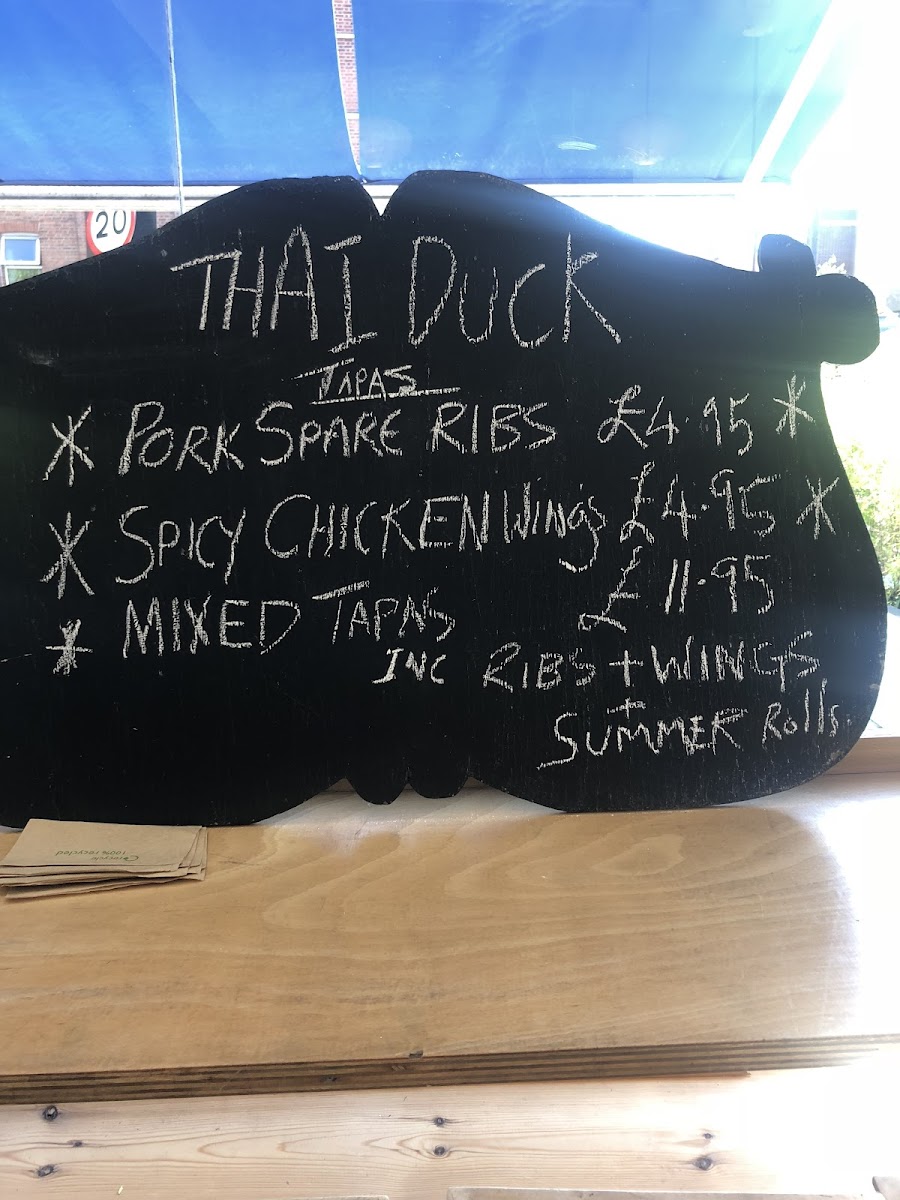 20
THAI DUCK
TAPAS
* PORK SPARE RIBS £4.95 *
* SPICY CHICKEN WINgS £4.95 *
* MIXED TAPAS £11.95
INC RIBS + WINGS
+
SUMMER Rolls.
100% recycled